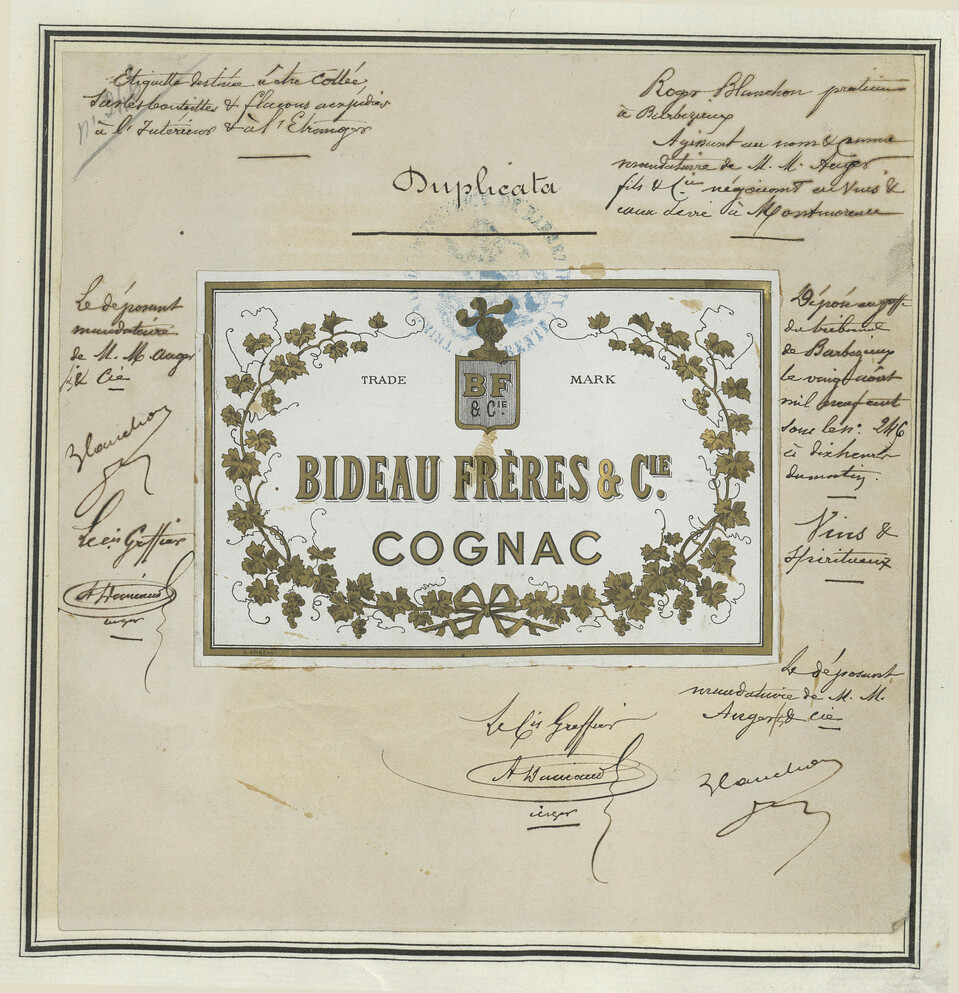 Etiquette destinée à être Collée
sur les bouteilles & flacons expédiés
à l'Intérieur & à l'Etranger
Roger Blanchon praticien
à Barbezieux
Agissant au nom & comme
mandataire de M. M. Auger
fils & Cie négociant en Vins &
eaux de vie à
Duplicata
Le déposant
mandataire
de M. M. Auger
fs & Cie
Blanchon
Le Cis Greffier
TRADE MARK
BF
& CIE
BIDEAU FRÈRES & CIE.
COGNAC
Déposé au greffe
du tribunal
de Barbezieux
le vingt Août
mil neuf cent
sous le no. 246
à dix heures
du matin.
Vins &
Spiritueux
Le déposant
mandataire de M. M.
Auger fs & Cie
Blanchon
Le Cis Greffier